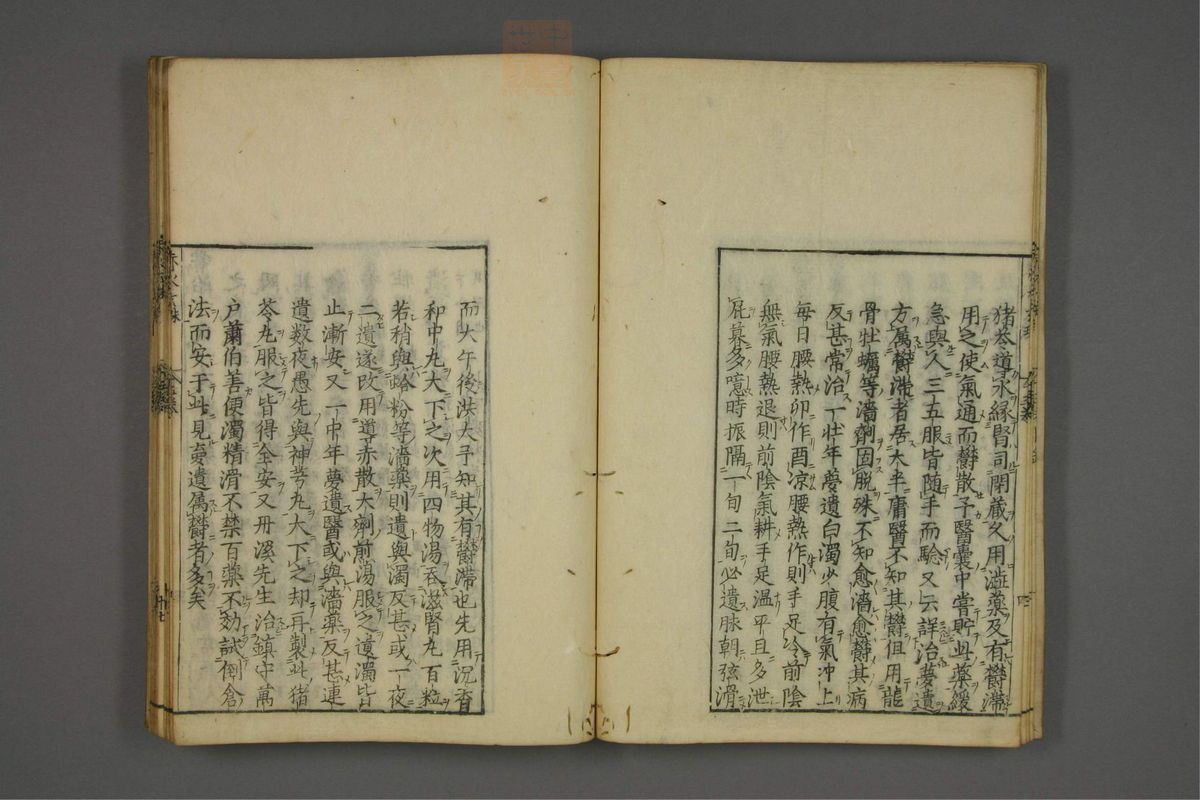 猪苓導水縁腎司閉蔵久用澁薬及有欝滞
用之使氣通而欝散予醫嚢中嘗貯此薬緩
急與人三五服皆随手而驗又云詳治夢遺
方属欝滞者居大半庸醫不知其欝但用龍
骨牡蠣等濇劑固脱殊不知愈濇愈欝其病
反甚常治一壮年夢遺白濁少腹有氣冲上
毎日腰熱卯作酉凉腰熱作則手足冷前陰
無氣腰熱退則前陰氣耕手足温平旦多泄
屁暮多噫時振隔一旬二旬必遺脉朝弦滑
而大午後洪大予知其有欝滞也先用沉香
和中丸大下之次用四物湯吞滋腎丸百粒
若稍與蛤粉等濇薬則遺與濁反甚或一夜
二遺遂改用導赤散大劑煎湯服之遺濁皆
止漸安又一中年夢遺醫或與濇薬反甚連
遺数夜愚先與神芎丸大下之却再製此猪
苓丸服之皆得全安又丹溪先生治鎮守萬
户蕭伯善便濁精滑不禁百薬不効試倒倉
法而安于此見夢遺属欝者多矣